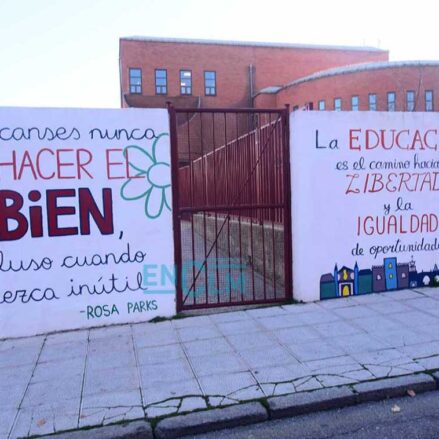 canses nunca
HACER EL
BiEN,
luso cuando
rezca inútil
-ROSA PARKS
La EDUCAC
es el camino hacia
LIBERTAD
y la
IGUALDAD
de oportunidade
ENCLM